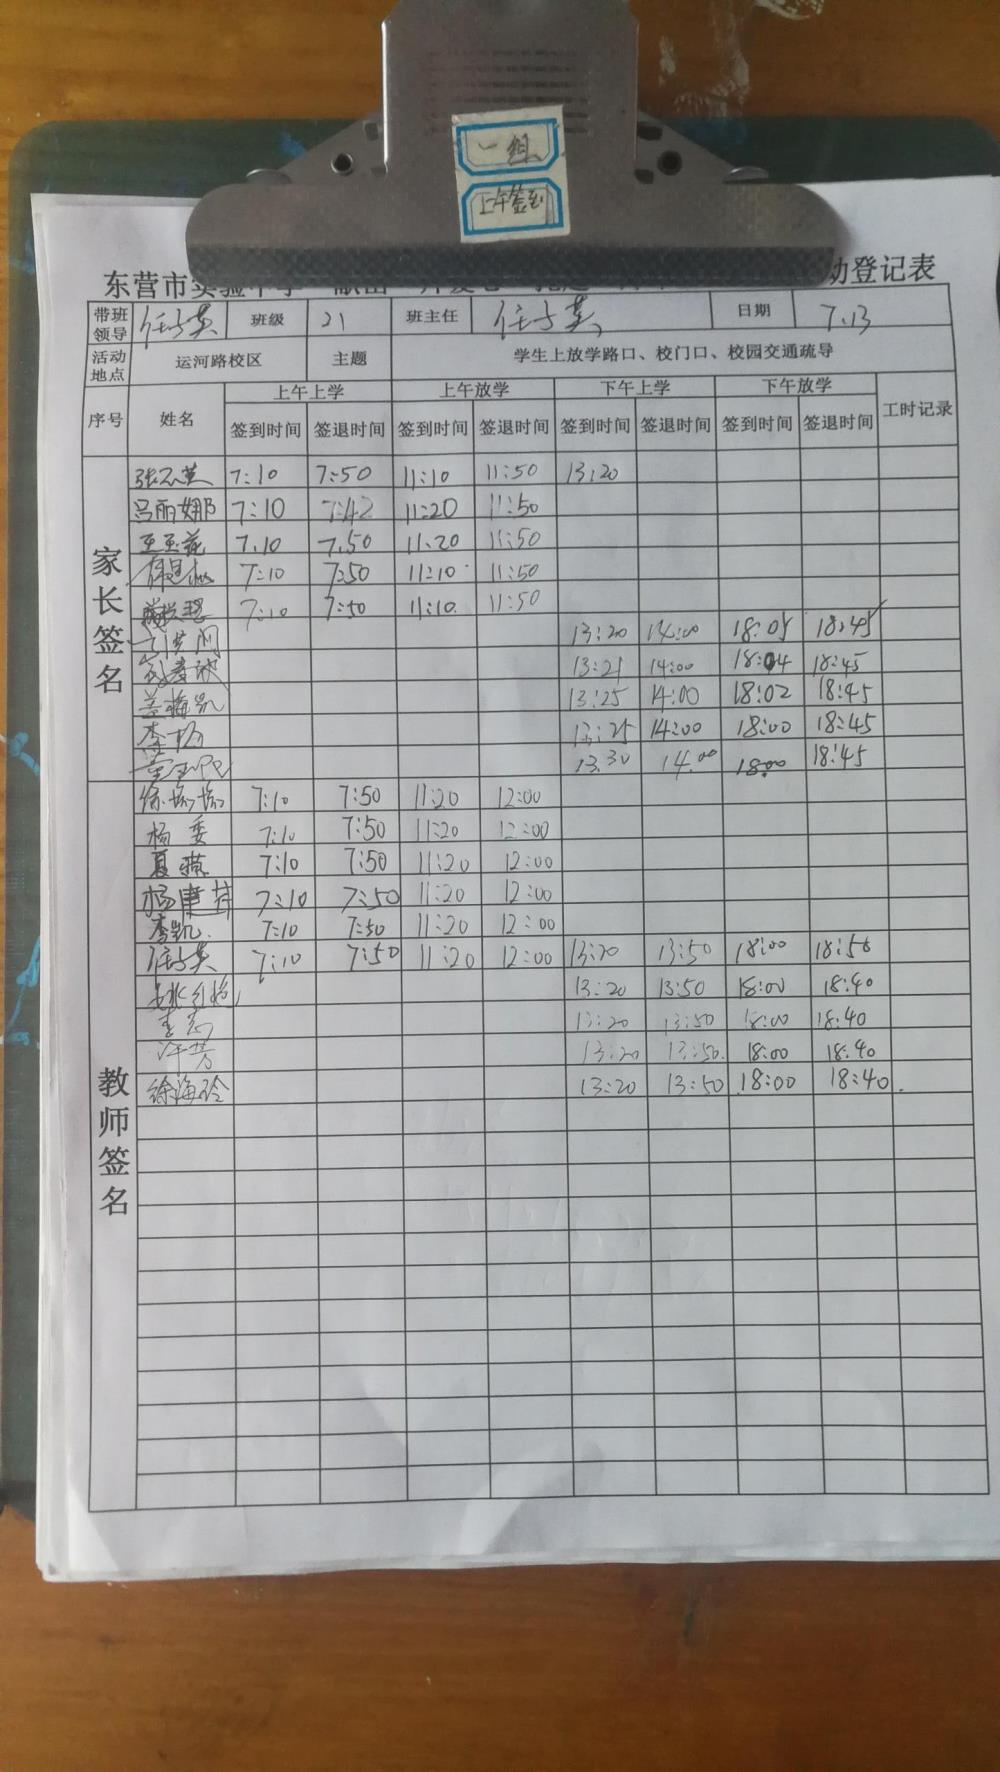 一组
上午签到
东营市实验中学
动登记表
带班领导 任子英 班级 21 班主任 任子英 日期 7.13
活动地点 运河路校区 主题 学生上放学路口、校门口、校园交通疏导
序号 姓名 上午上学 上午放学 下午上学 下午放学 工时记录
签到时间 签退时间 签到时间 签退时间 签到时间 签退时间 签到时间 签退时间
家长签名
7:10 7:50 11:10 11:50 13:20
吕丽娜 7:10 7:42 11:20 11:50
7.10 7.50 11.20 11:50
7:10 7:50 11:10 11:50
7:10 7:50 11:10 11:50
13:20 14:00 18:05 18:45
13:21 14:00 18:04 18:45
13:25 14:00 18:02 18:45
李杨 13:25 14:00 18:00 18:45
13.30 14.00 18:00 18:45
教师签名
7:10 7:50 11:20 12:00
杨委 7:10 7:50 11:20 12:00
夏琪 7:10 7:50 11:20 12:00
7:10 7:50 11:20 12:00
李凯 7:10 7:50 11:20 12:00
任子英 7:10 7:50 11:20 12:00 13:20 13:50 18:00 18:50
13:20 13:50 18:00 18:40
13:20 13:50 18:00 18:40
13:20 13:50 18:00 18:40
徐海玲 13:20 13:50 18:00 18:40